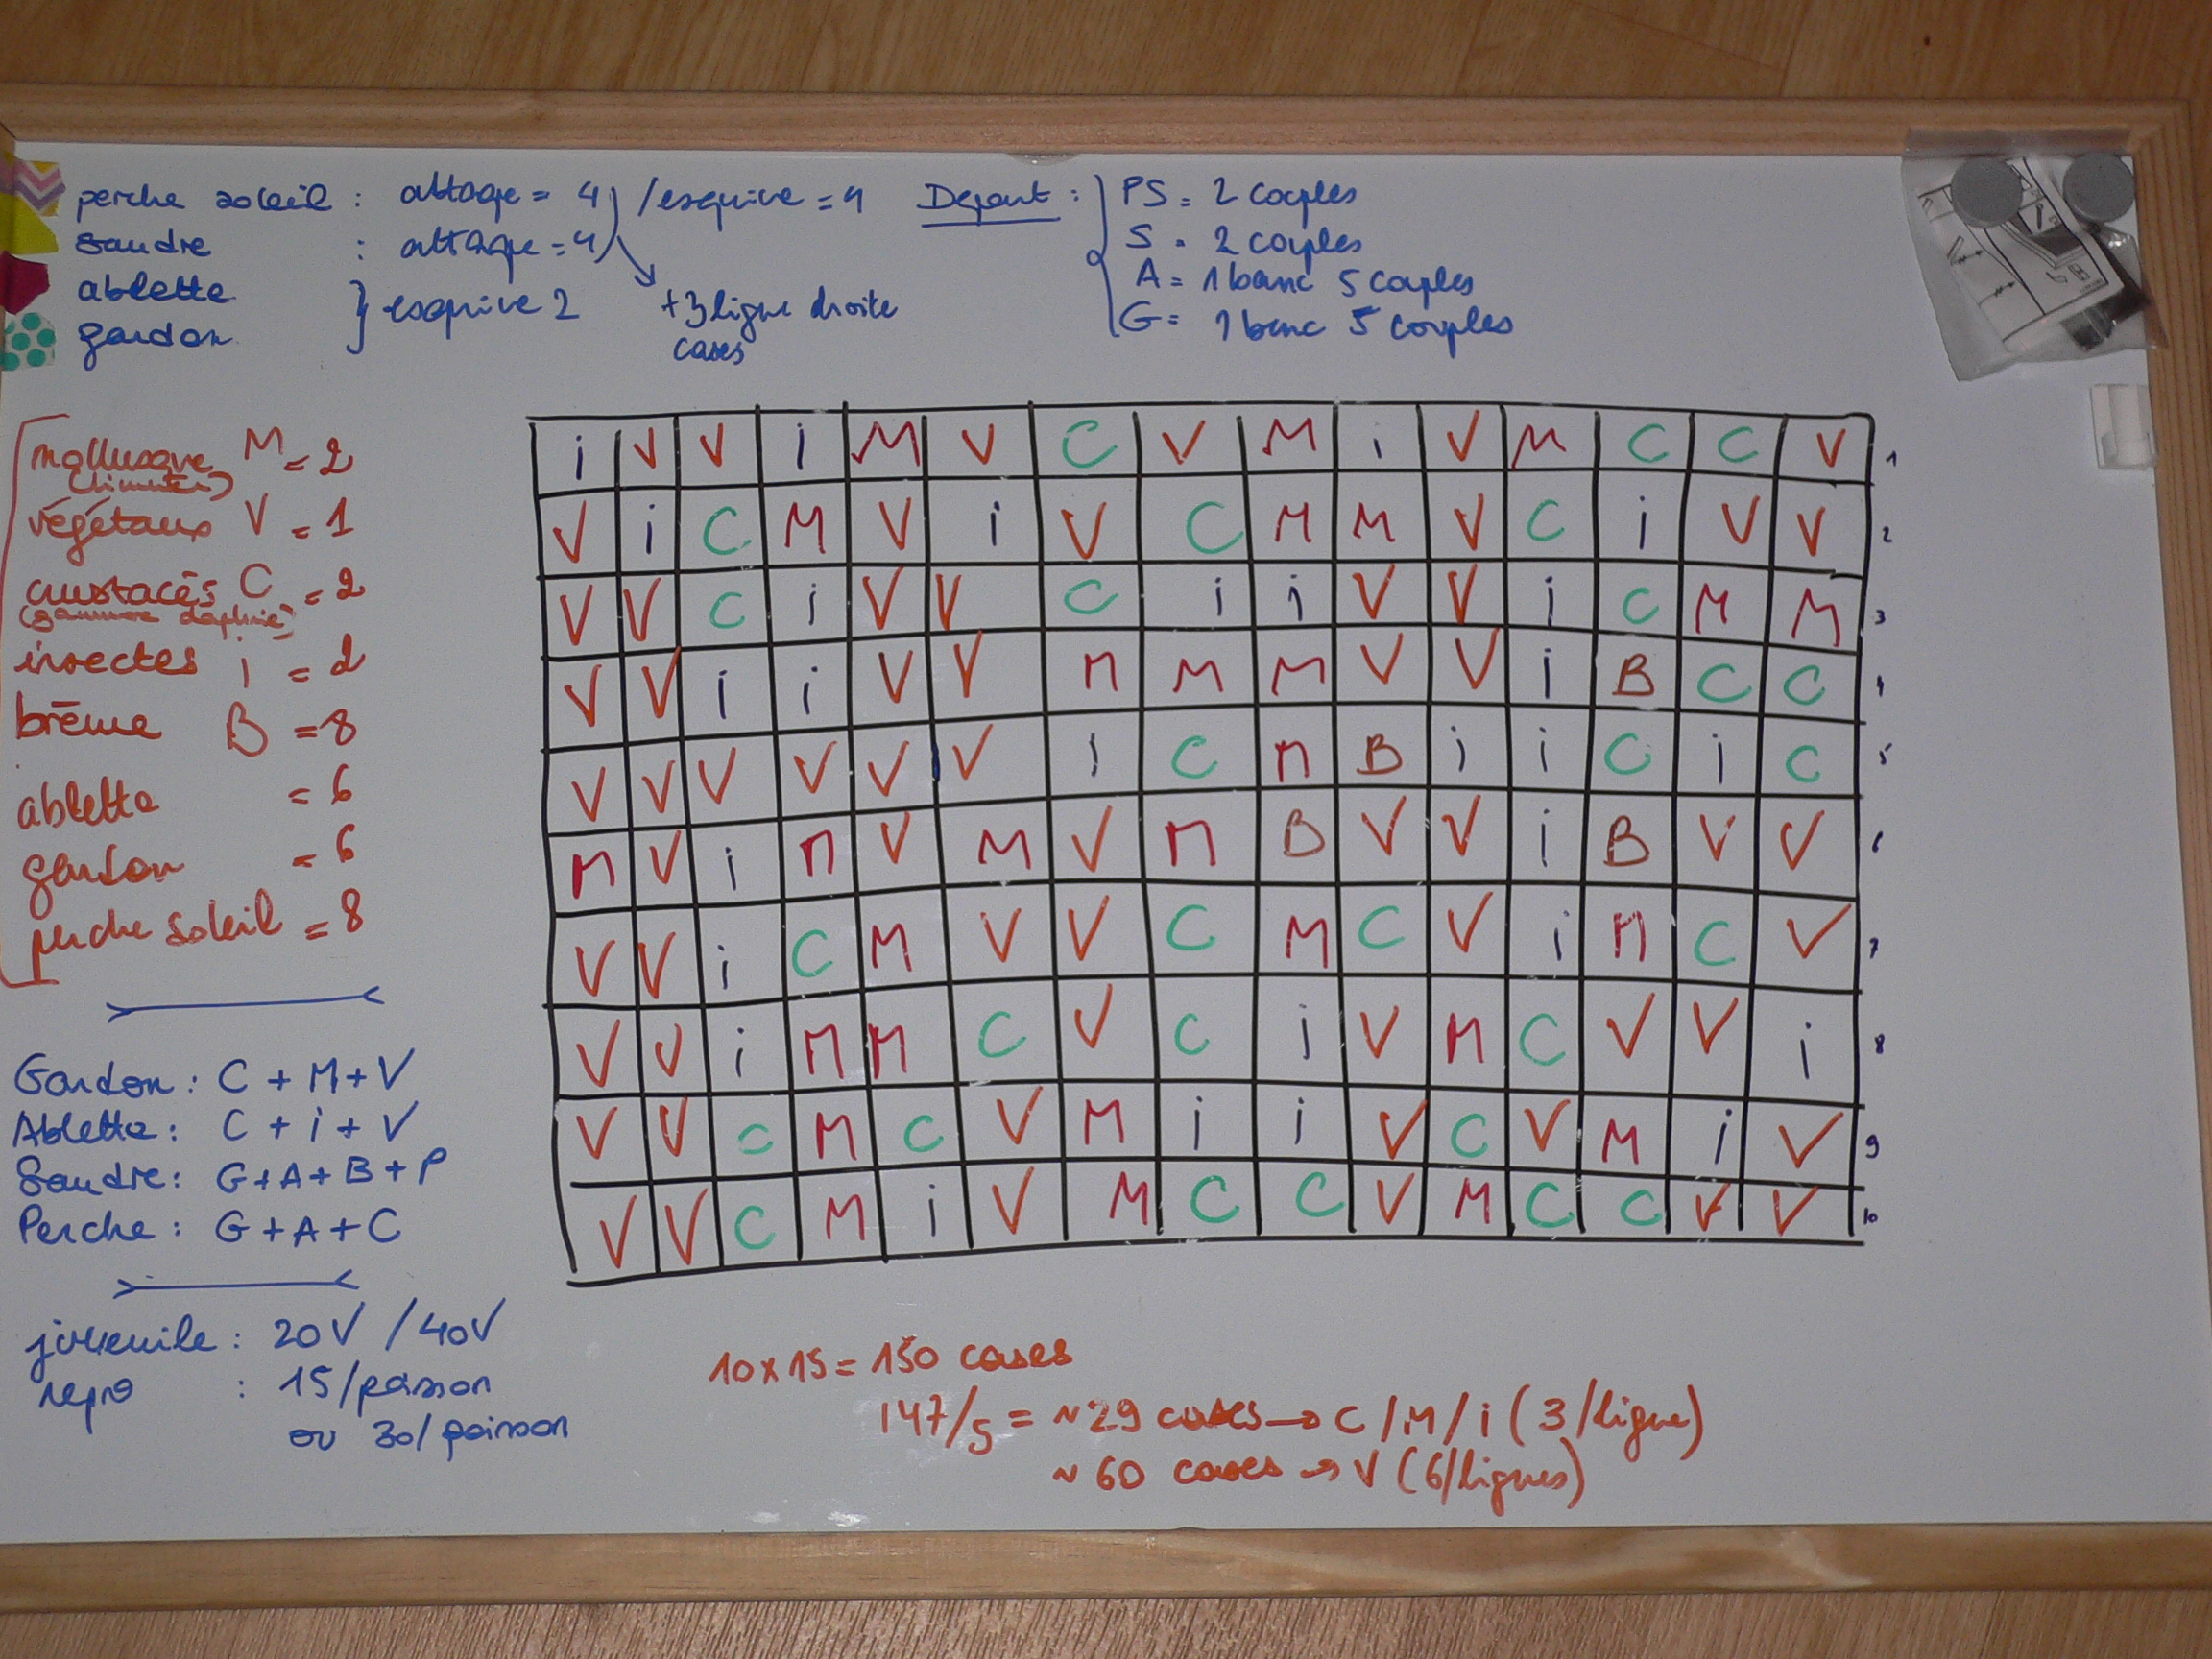 perche soleil : attaque = 4 / esquive = 4
sandre : attaque = 4
ablette
gardon
} esquive 2
+3 ligne droite
cases
Depart :
PS = 2 couples
S = 2 couples
A = 1 banc 5 couples
G = 1 banc 5 couples
mollusque M = 2
végétaux V = 1
crustacés C = 2
(gammare daphnie)
insectes i = 2
brème B = 8
ablette = 6
gardon = 6
perche soleil = 8
Gardon : C + M + V
Ablette : C + i + V
Sandre : G + A + B + P
Perche : G + A + C
juvenile : 20V / 40V
repro : 15/poisson
ou 30/poisson
i V V i M V C V M i V M C C V 1
V i C M V i V C M M V C i V V 2
V V C i V V C i i V V i C M M 3
V V i i V V M M M V V i B C C 4
V V V V V V i C M B i i C i C 5
M V i M V M V M B V V i B V V 6
V V i C M V V C M C V i M C V 7
V V i M M C V C i V M C V V i 8
V V C M C V M i i V C V M i V 9
V V C M i V M C C V M C C V V 10
10 x 15 = 150 cases
147/5 = ~ 29 cases → C / M / i ( 3 / ligne)
~ 60 cases → V (6/lignes)